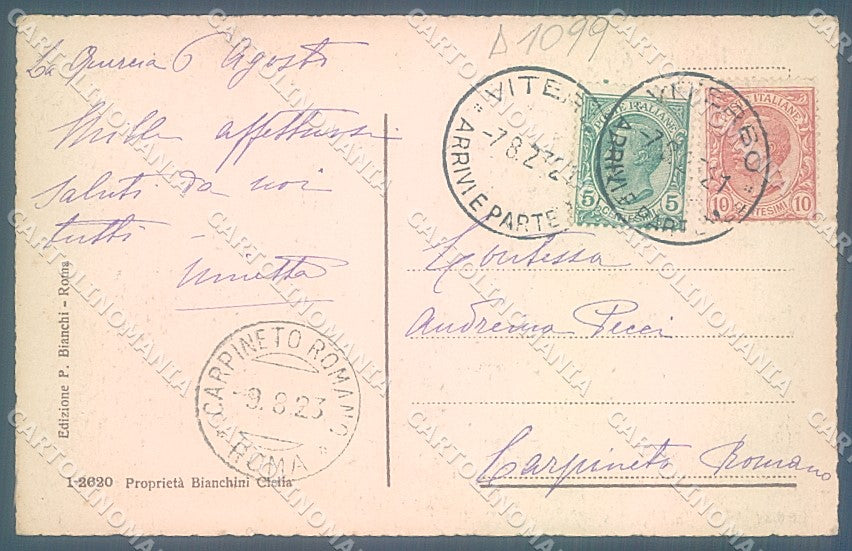 D 1099
La Quercia 6 Agosto
Mille affettuosi
saluti da noi
tutti –
VITERBO
ARRIVI E PARTENZE
-7 8.23 21
VITERBO
ARRIVI E PARTENZE
POSTE ITALIANE
5 5
CENTESIMI
POSTE ITALIANE
10 10
CENTESIMI
Contessa
Pecci
Carpineto Romano
CARPINETO ROMANO
-9.8.23
ROMA
Edizione P. Bianchi - Roma
1-2620 Proprietà Bianchini Clelia
CARTOLINOMANIA